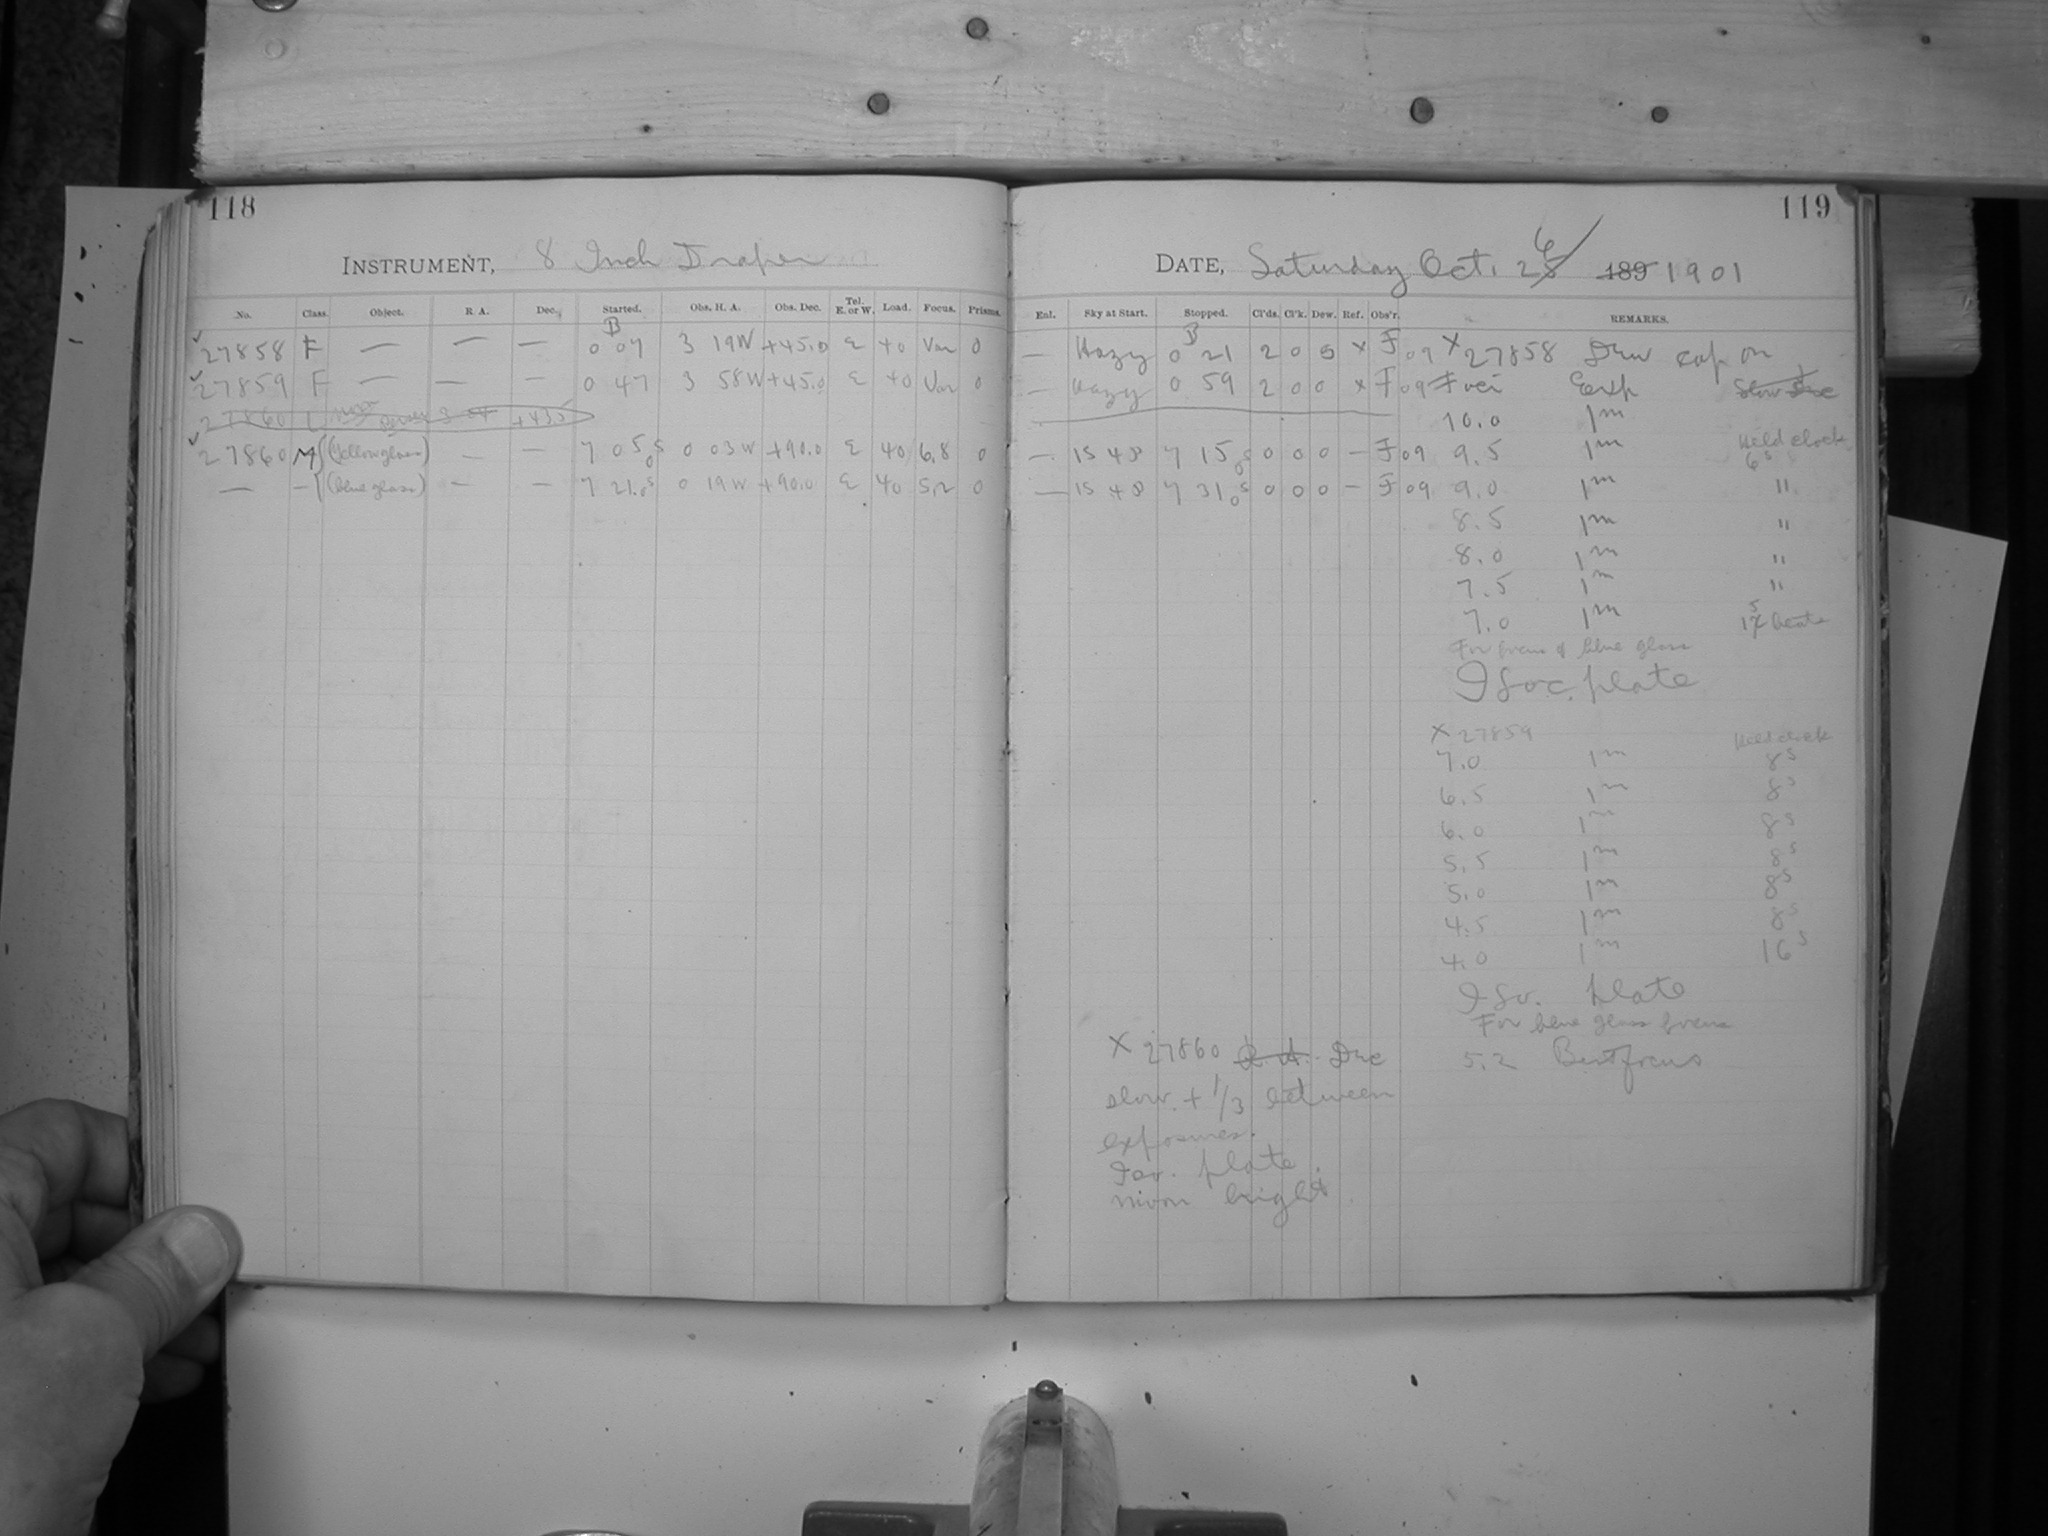 118
INSTRUMENT, 8 Inch Draper
No. Class. Object. R. A. Dec. Started. Obs. H. A. Obs. Dec. Tel. E. or W. Load. Focus. Prisms.
B
27858 F — — — 0 07 3 19W +45.0 E 40 Var 0
27859 F — — — 0 47 3 58W +45.0 E 40 Var 0
27860 L +43.5
27860 M (Yellow glass) — — 7 05 0s 0 03W +90.0 E 40 6.8 0
— — (blue glass) — — 7 21.0s 0 19W +90.0 E 40 5.2 0
119
DATE, Saturday Oct. 26 189 1901
Enl. Sky at Start. Stopped. Cl'ds. Cl'k. Dew. Ref. Obs'r. REMARKS.
B
— Hazy 0 21 2 0 5 x F 09 X 27858 Dew cap on
— Hazy 0 59 2 0 0 x F 09 Foci Exp Slow Dec
10.0 1m
— 15 48 7 15 0s 0 0 0 — F 09 9.5 1m Held clock 6s
— 15 48 7 31 0s 0 0 0 — F 09 9.0 1m "
8.5 1m "
8.0 1m "
7.5 1m "
7.0 1m 15 beats
For focus of blue glass
Isoc. plate
X 27859 Held clock
7.0 1m 8s
6.5 1m 8s
6.0 1m 8s
5.5 1m 8s
5.0 1m 8s
4.5 1m 8s
4.0 1m 16s
Iso. plate
For blue glass focus
5.2 Best focus
X 27860 R. A. Dec
slow + 1/3 between
exposures.
Iso. plate.
Moon bright